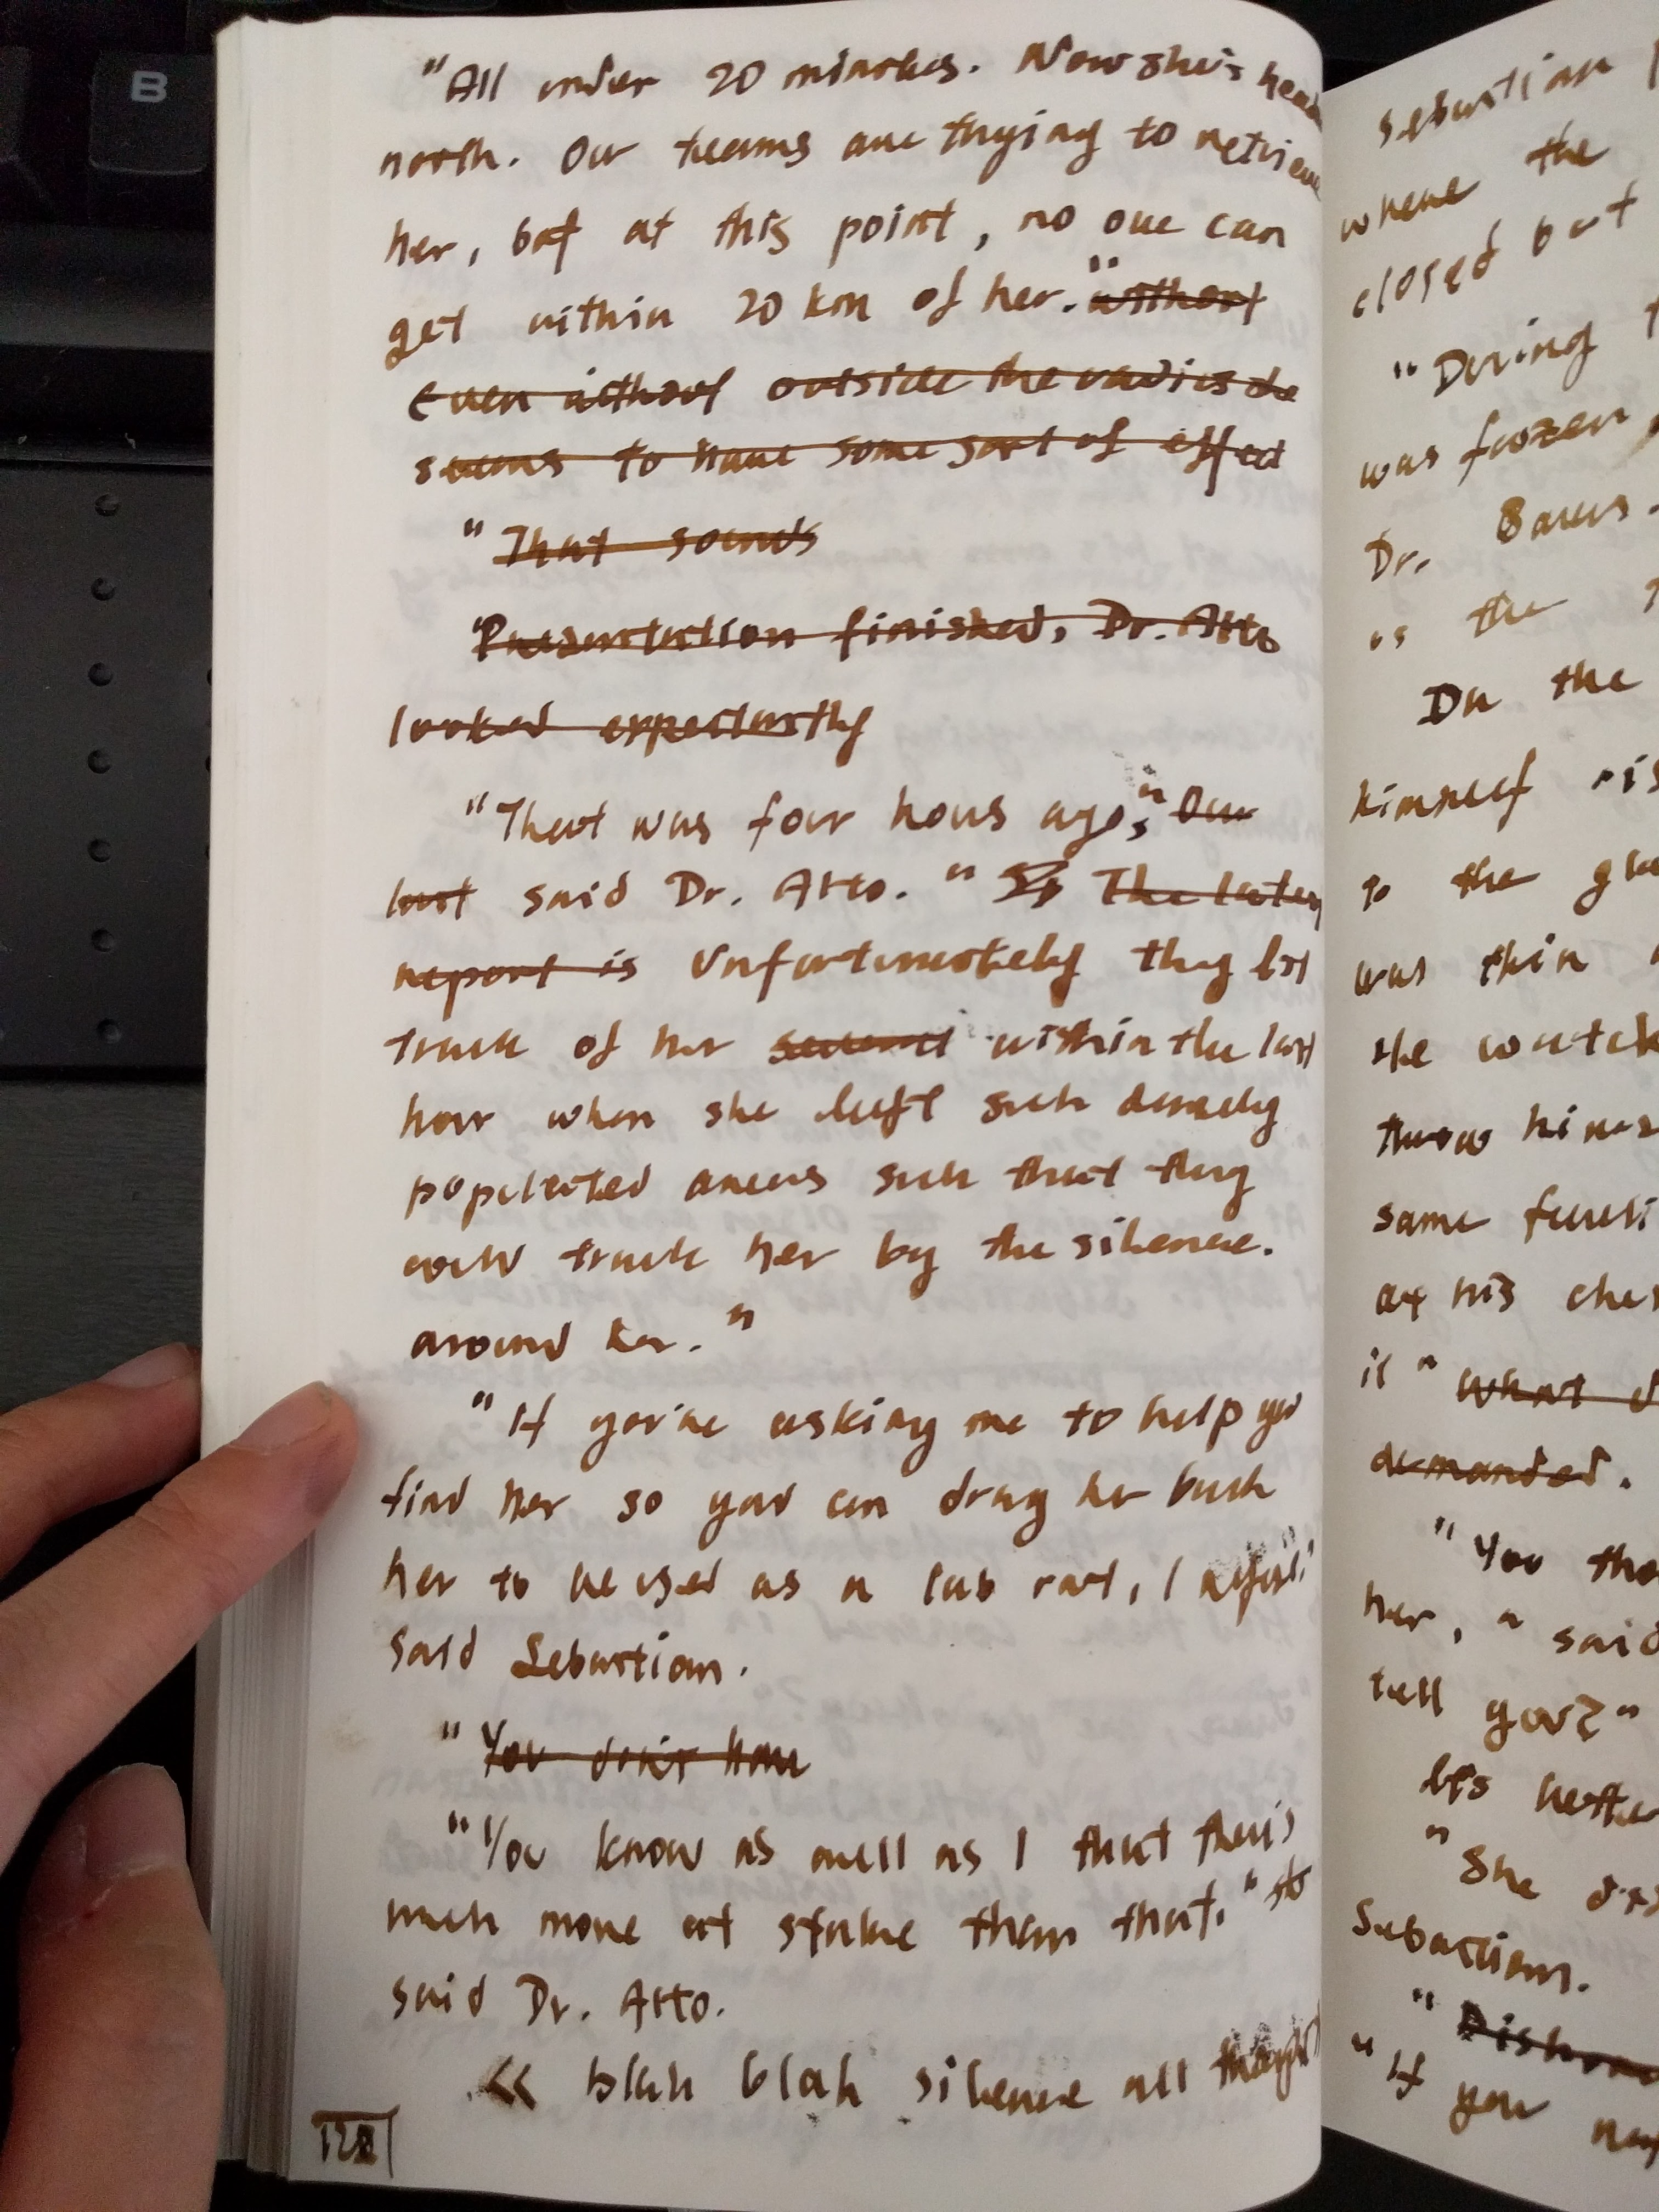 B
"All under 20 minutes. Now she's
north. Our teams are trying to retrieve
her, but at this point, no one can
get within 20 km of her." without
Even without outside the radius she
seems to have some sort of effect
"That sounds
"Presentation finished, Dr. Atto
looked expectantly
"That was four hours ago," Our
last said Dr. Atto. " The latest
report is Unfortunately they lost
track of her several within the last
hour when she left such densely
populated areas such that they
could track her by the silence.
around her."
"If you're asking me to help you
find her so you can drag her back
her to be used as a lab rat, I refuse"
said Sebastian.
"You don't have
"You know as well as I that there's
much more at stake than that."
said Dr. Atto.
<< blah blah silence all thought
128
Sebastian
where the
closed but
"During
was frozen
Dr. Barus.
is the
On the
himself
to the
was thin
He
throw
same
at his
it " What
demanded.
"You
her," said
tell you?"
It's better
"She
Sebastian.
"
"If you